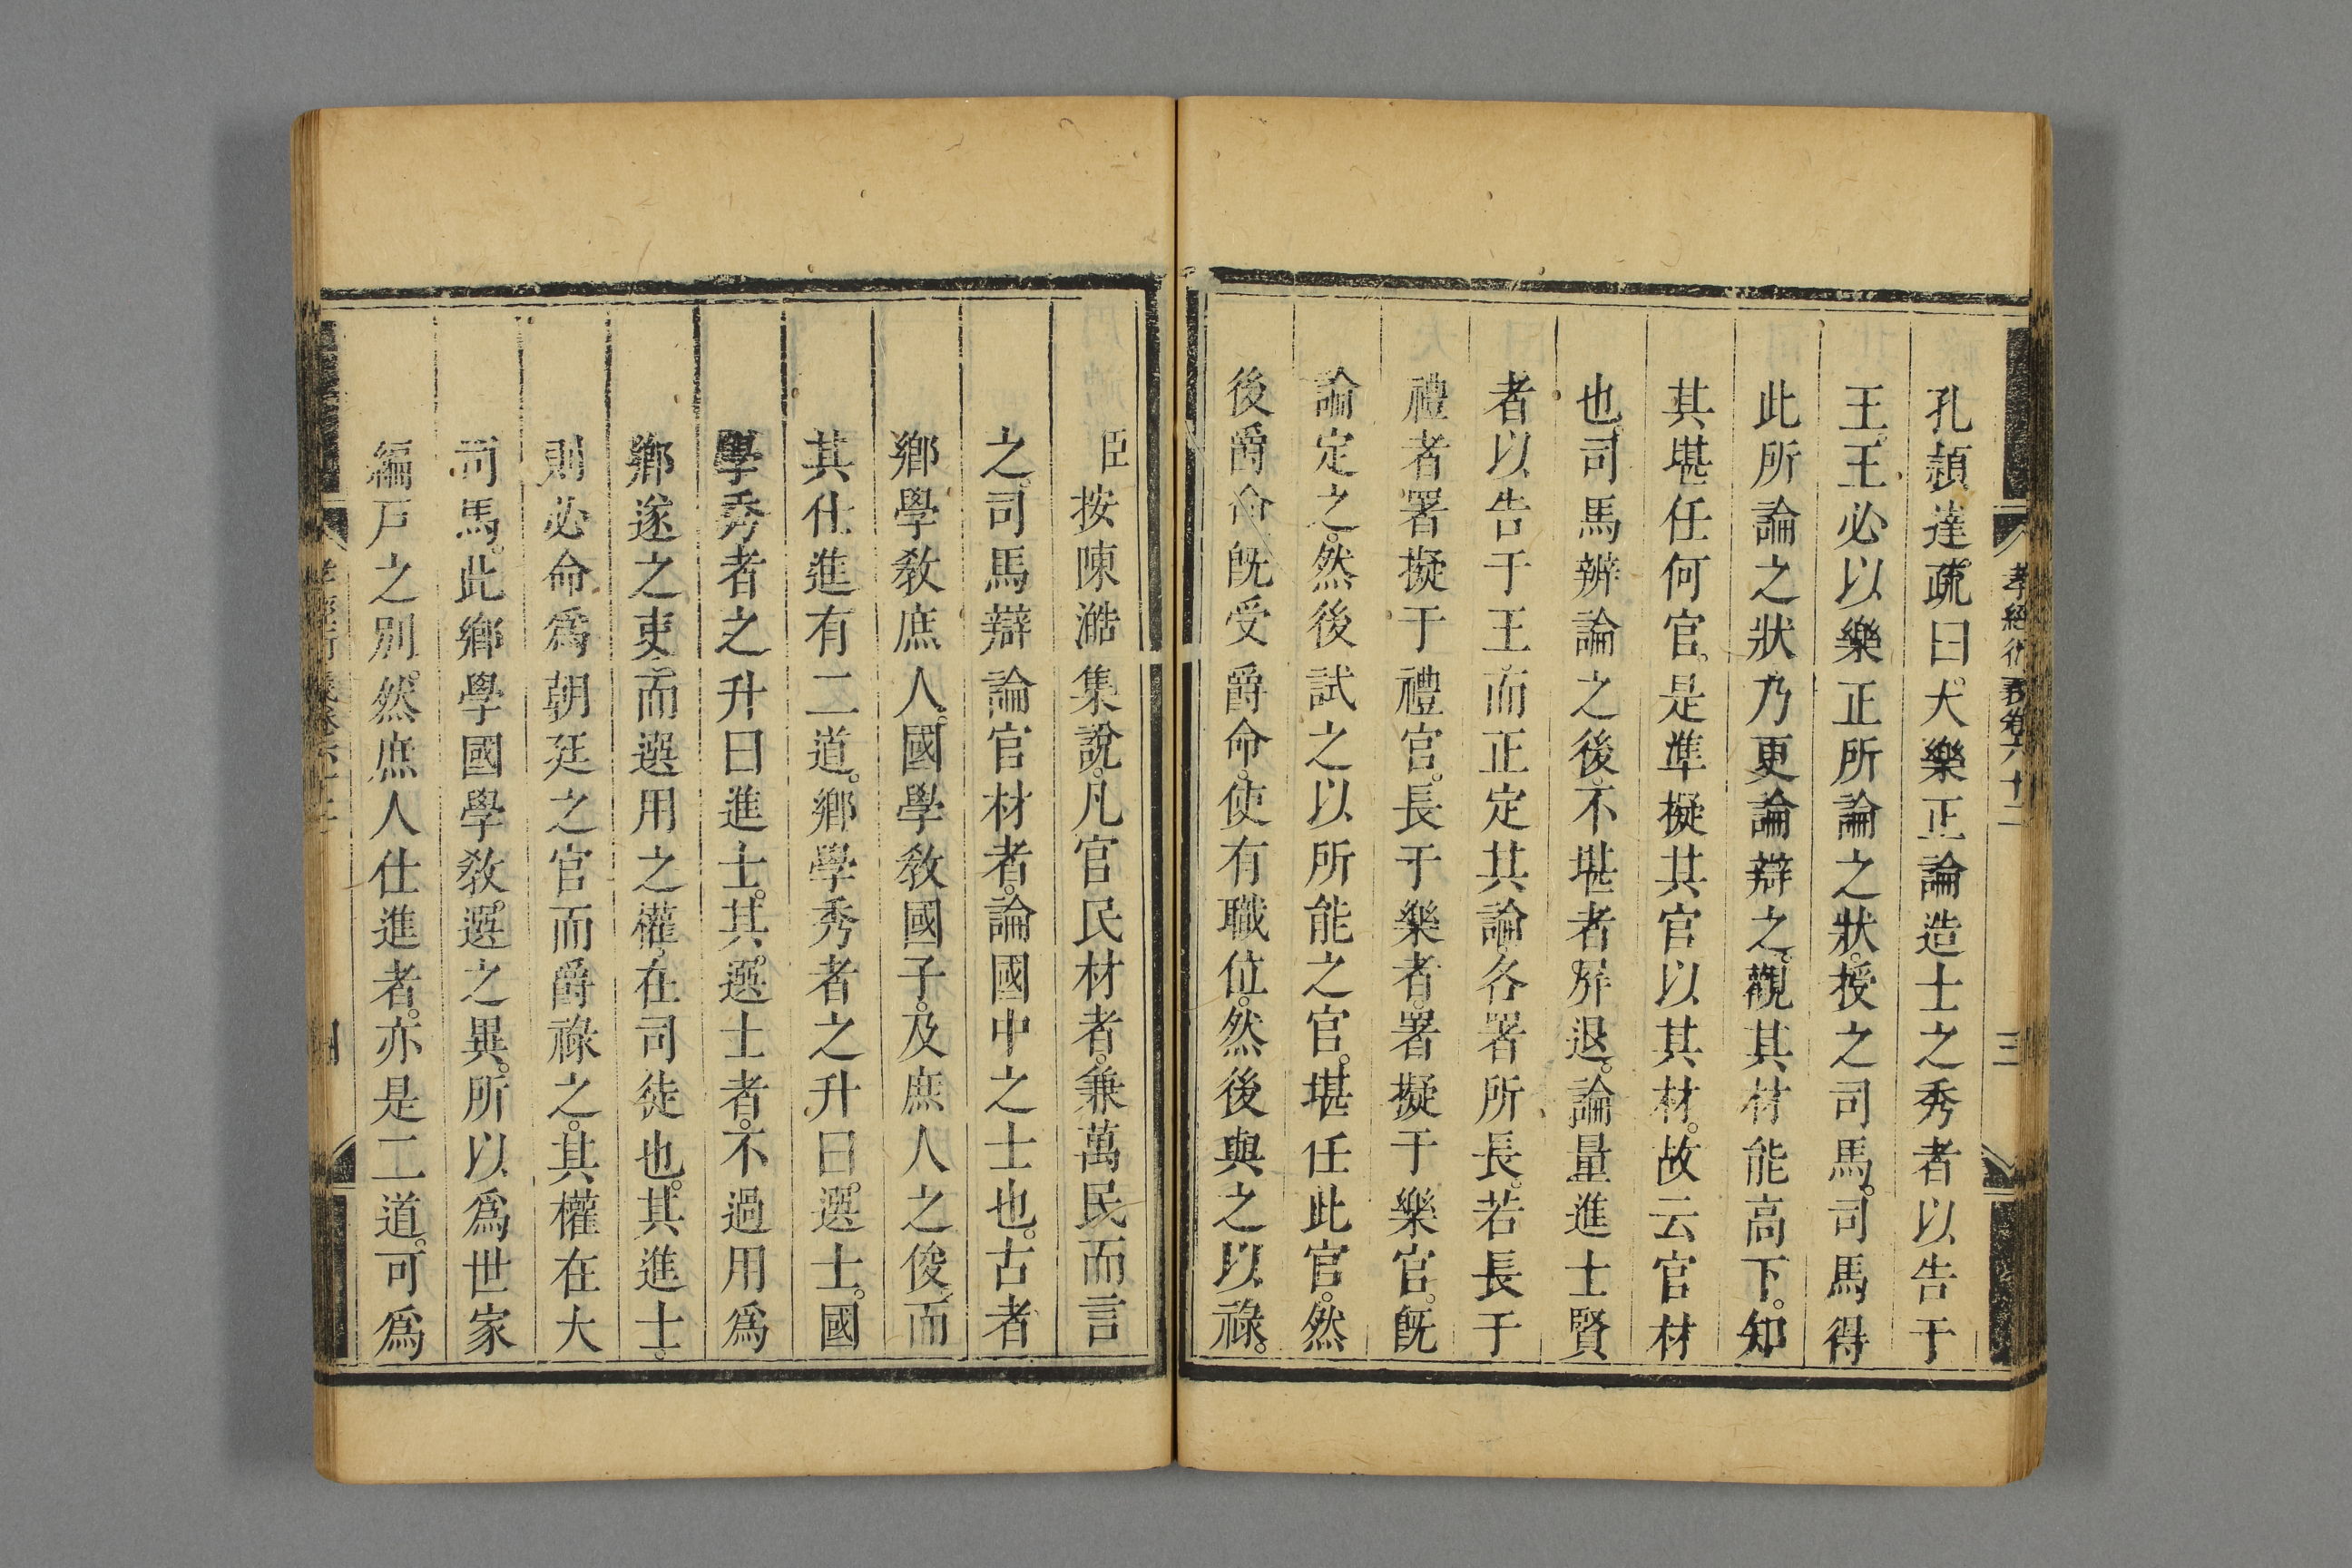 孝經衍義卷六十二
三
孔頴達疏曰。大樂正論造士之秀者以告于
王。王必以樂正所論之狀。授之司馬。司馬得
此所論之狀乃更論辯之。觀其材能高下。知
其堪任何官。是準擬其官以其材。故云官材
也。司馬辨論之後。不堪者。屏退。論量進士賢
者以告于王。而正定其論。各署所長。若長于
禮者署擬于禮官。長于樂者。署擬于樂官。旣
論定之。然後試之以所能之官。堪任此官。然
後爵命旣受爵命。使有職位。然後與之以祿。
臣按陳澔集說。凡官民材者。兼萬民而言
之。司馬辯論官材者。論國中之士也。古者
鄉學敎庶人。國學敎國子。及庶人之俊。而
其仕進有二道。鄉學秀者之升曰。選士。國
學秀者之升曰進士。其。選士者。不過用爲
鄉遂之吏。而選用之權。在司徒也。其進士。
則必命爲朝廷之官而爵祿之。其權在大
司馬。此鄉學國學敎。選之異。所以爲世家
編戸之別。然庶人仕進者。亦是二道。可爲
孝經衍義卷六十二
四